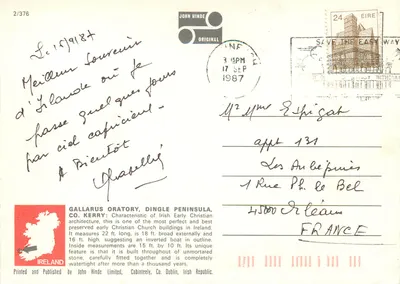 2/376
JOHN HINDE
ORIGINAL
L. 15/9/87
Meilleur Souvenir
d'Irlande où je
passe quelques jours
par ciel capricieux.
A Bientôt
24 EIRE
3 15PM
17 SEP
1987
SAVE THE EASY WAY
Mr Mme
appt 131
Les Aubépinis
1 Rue Ph. le Bel
45000 Orléans
FRANCE
IRELAND
GALLARUS ORATORY, DINGLE PENINSULA,
CO. KERRY: Characteristic of Irish Early Christian
architecture, this is one of the most perfect and best
preserved early Christian Church buildings in Ireland.
It measures 22 ft. long, is 18 ft. broad externally and
16 ft. high, suggesting an inverted boat in outline.
Inside measurements are 15 ft. by 10 ft. Its unique
feature is that it is built throughout of unmortared
stone, carefully fitted together and is completely
watertight after more than a thousand years.
Printed and Published by John Hinde Limited, Cabinteely, Co. Dublin, Irish Republic.